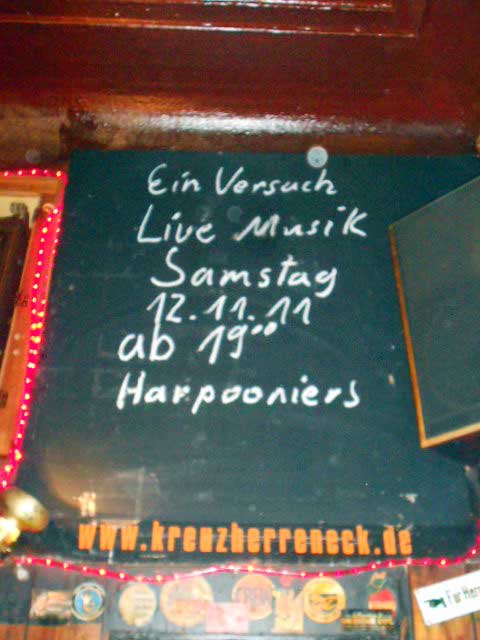 Ein Versuch
Live Musik
Samstag
12.11.11
ab 19⁰⁰
Harpooniers
www.kreuzherreneck.de
Für Herr